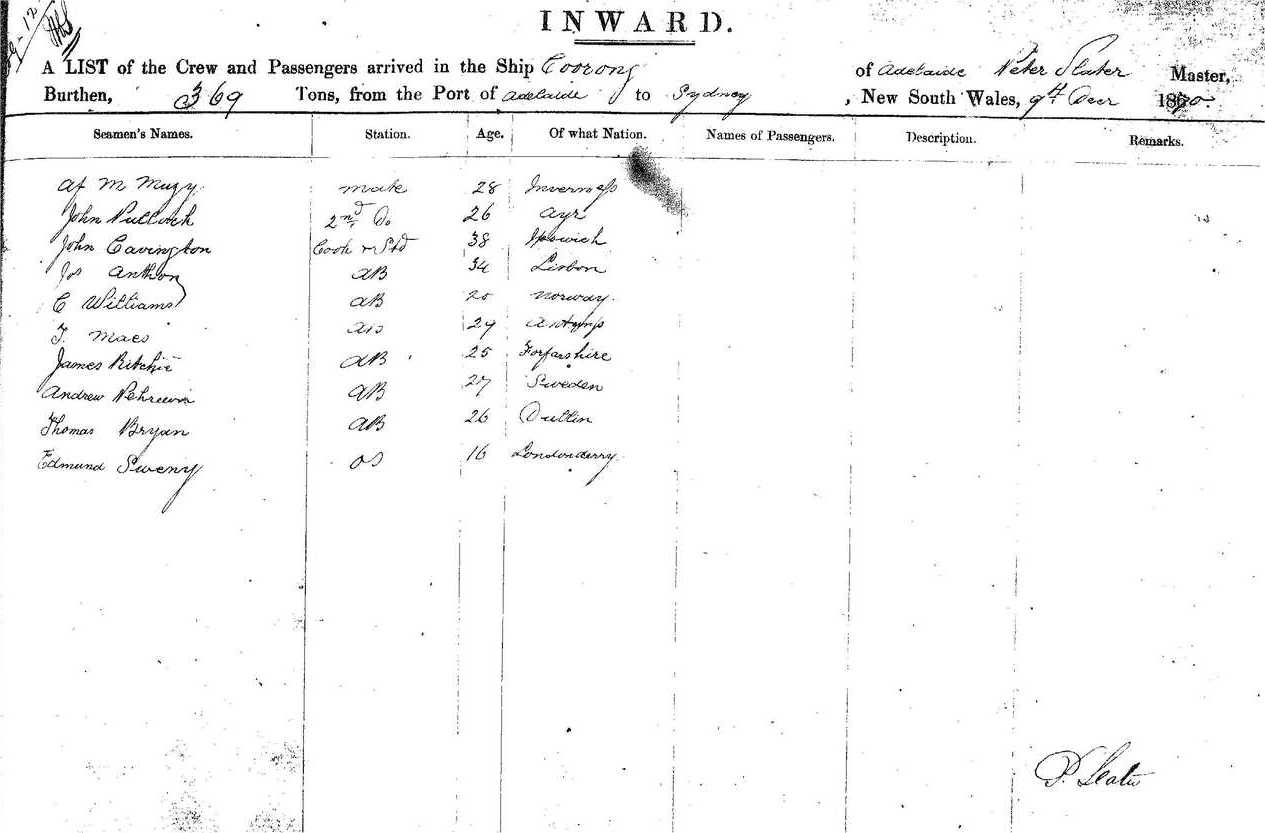 INWARD.
A LIST of the Crew and Passengers arrived in the Ship Coorong of Adelaide Peter Slater Master,
Burthen, 369 Tons, from the Port of Adelaide to Sydney, New South Wales, 9th Decr 1870.
Seamen's Names. Station. Age. Of what Nation. Names of Passengers. Description. Remarks.
mate 28 Inverness
John 2nd Do 26 Ayr
John Cavington Cook & Std 38 Ipswich
Jos Anthony AB 34 Lisbon
C Williams AB 20 Norway.
T. Maes AB 29
James Ritchie AB 25 Forfarshire
Andrew AB 27 Sweden
Thomas Bryan AB 26 Dublin
Edmund Sweny OS 16 Londonderry.
P. Slater